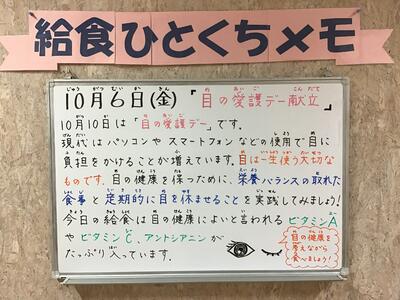 給食ひとくちメモ
10月6日(金)「目の愛護デー献立」
10月10日は「目の愛護デー」です。
現代はパソコンやスマートフォンなどの使用で目に
負担をかけることが増えています。目は一生使う大切な
ものです。目の健康を保つために、栄養バランスの取れた
食事と定期的に目を休ませることを実践してみましょう!
今日の給食は目の健康によいと言われるビタミンA
やビタミンC、アントシアニンが
たっぷり入っています。
目の健康を
考えながら
食べましょう!